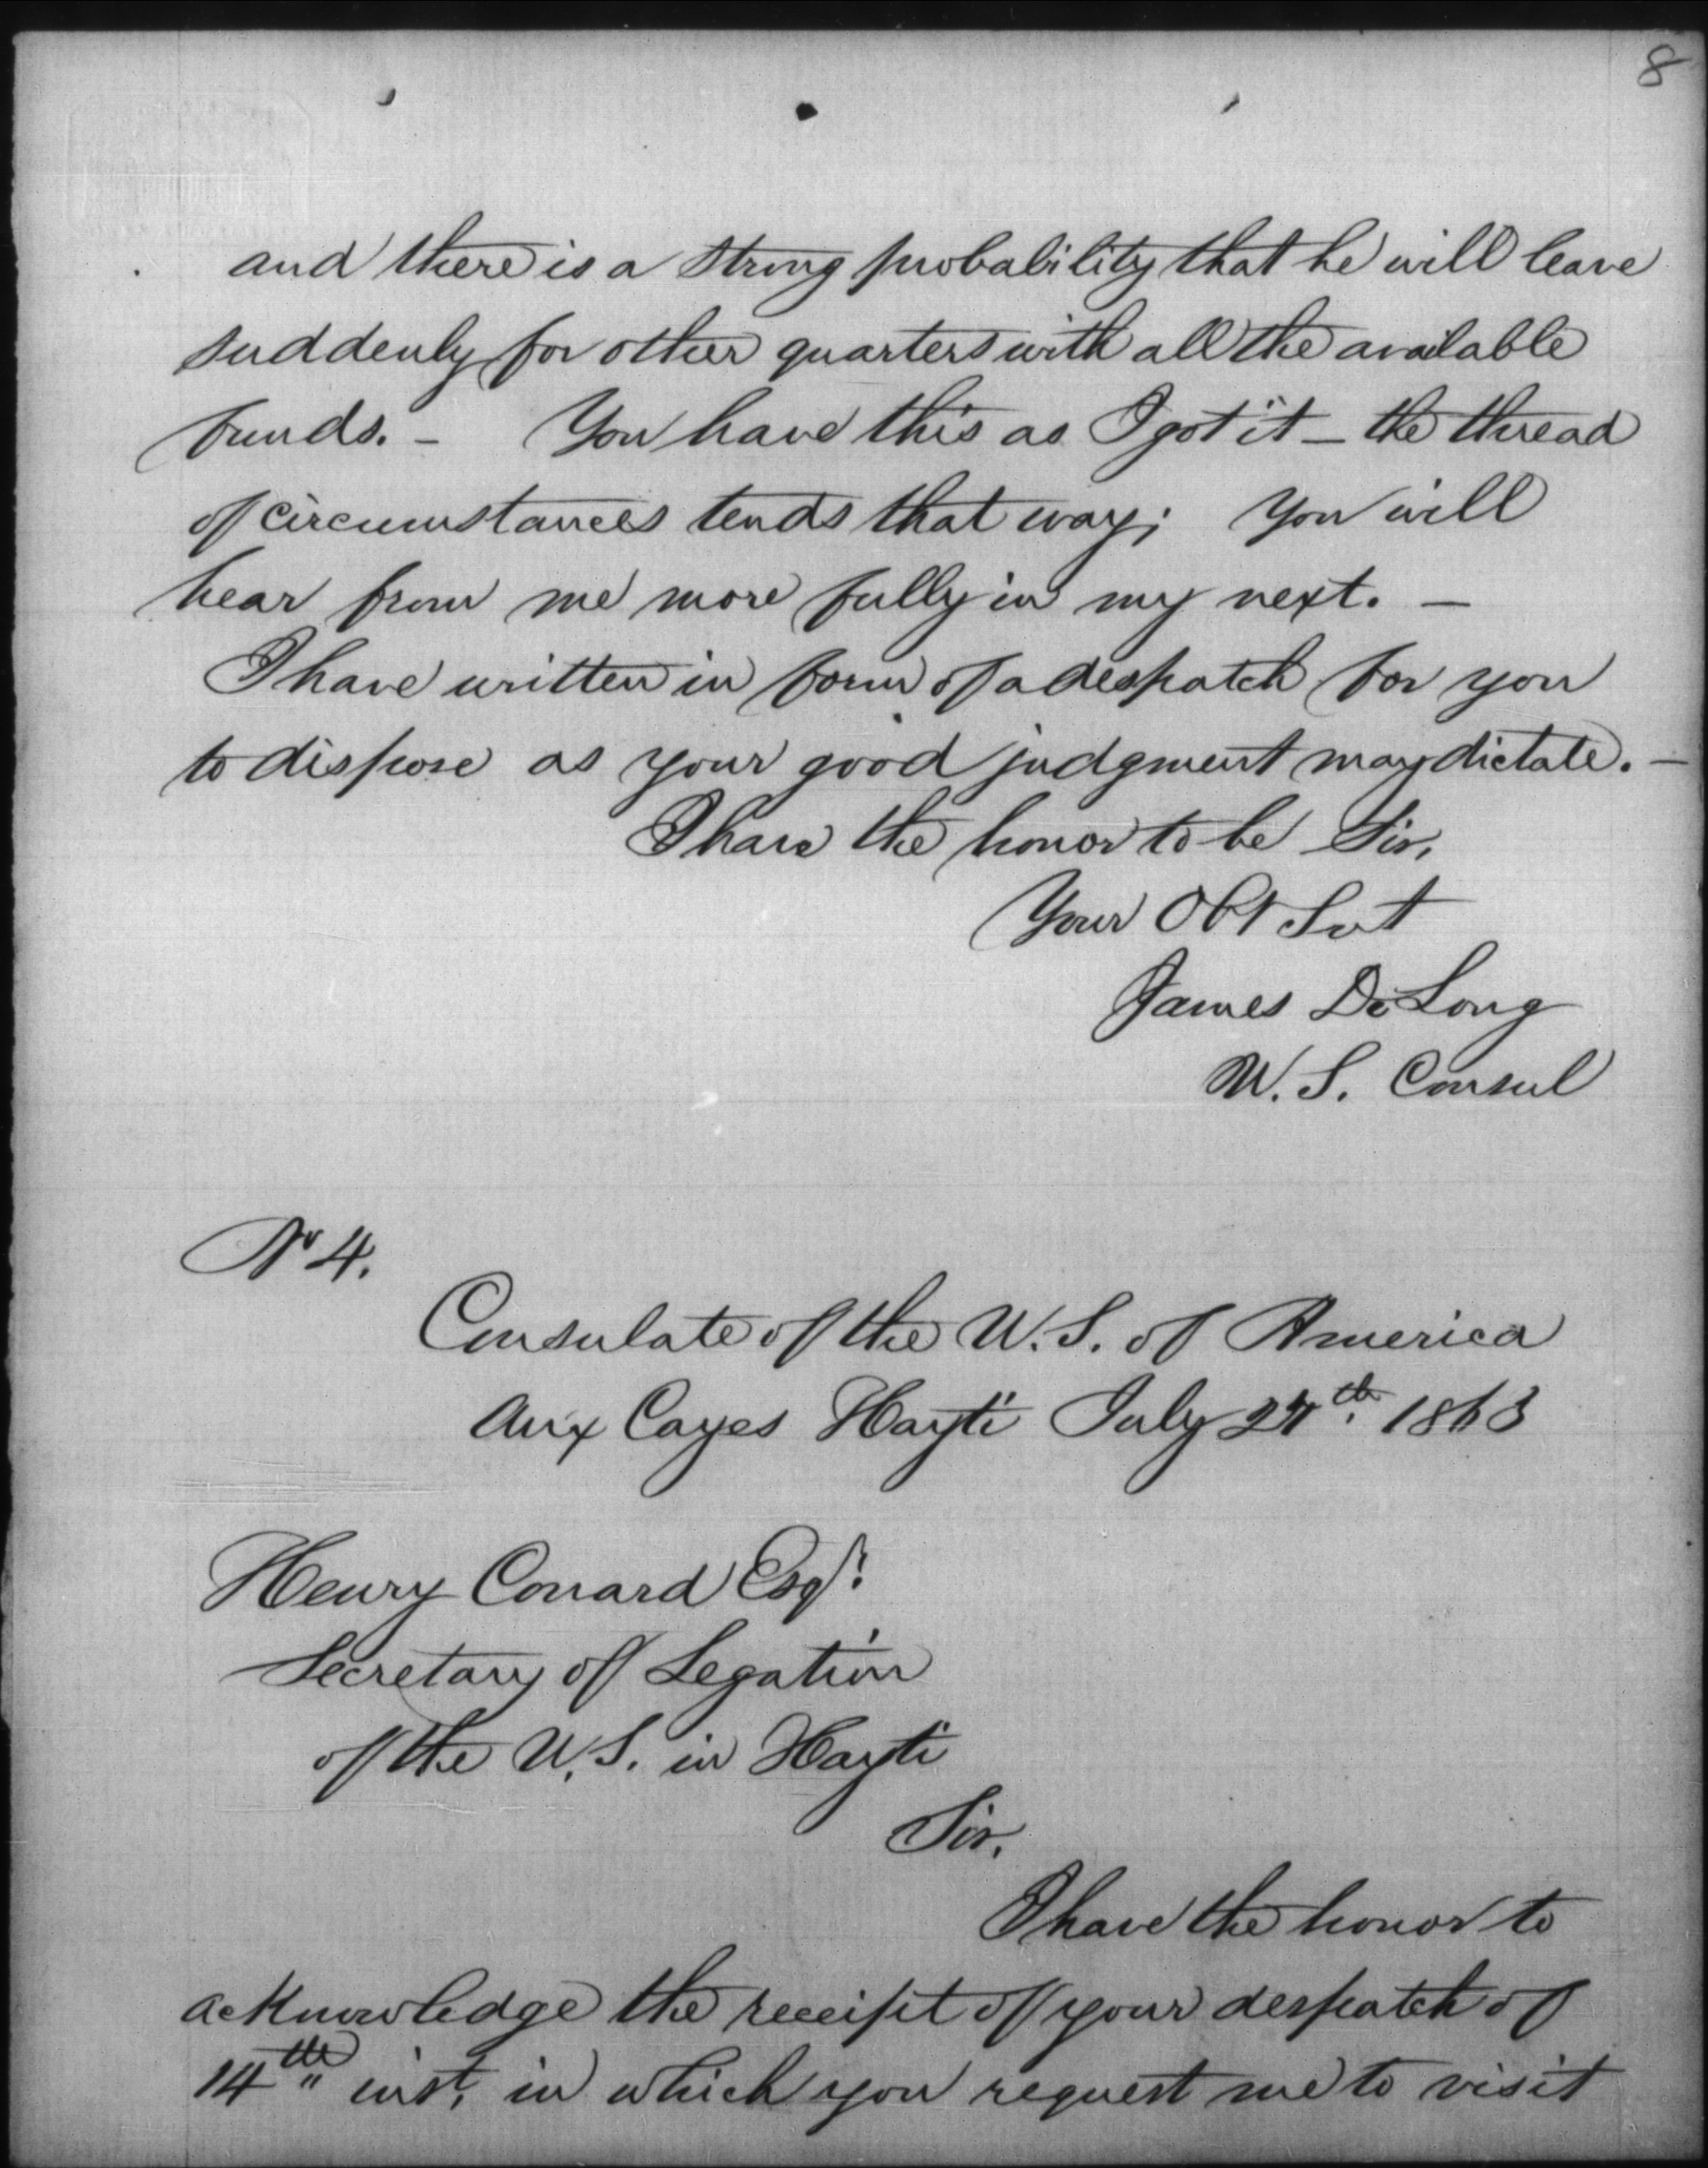 8
and there is a strong probability that he will leave
suddenly for other quarters with all the available
funds. – You have this as I got it – the thread
of circumstances tends that way; You will
hear from me more fully in my next. –
I have written in form of a despatch for you
to dispose as your good judgment may dictate. –
I have the honor to be Sir,
Your Obt Svt
James De Long
U.S. Consul
No 4.
Consulate of the U.S. of America
Aux Cayes Hayti July 27th. 1863
Henry Conard Esqr.
Secretary of Legation
of the U.S. in Hayti
Sir,
I have the honor to
acknowledge the receipt of your despatch of
14th" inst, in which you request me to visit